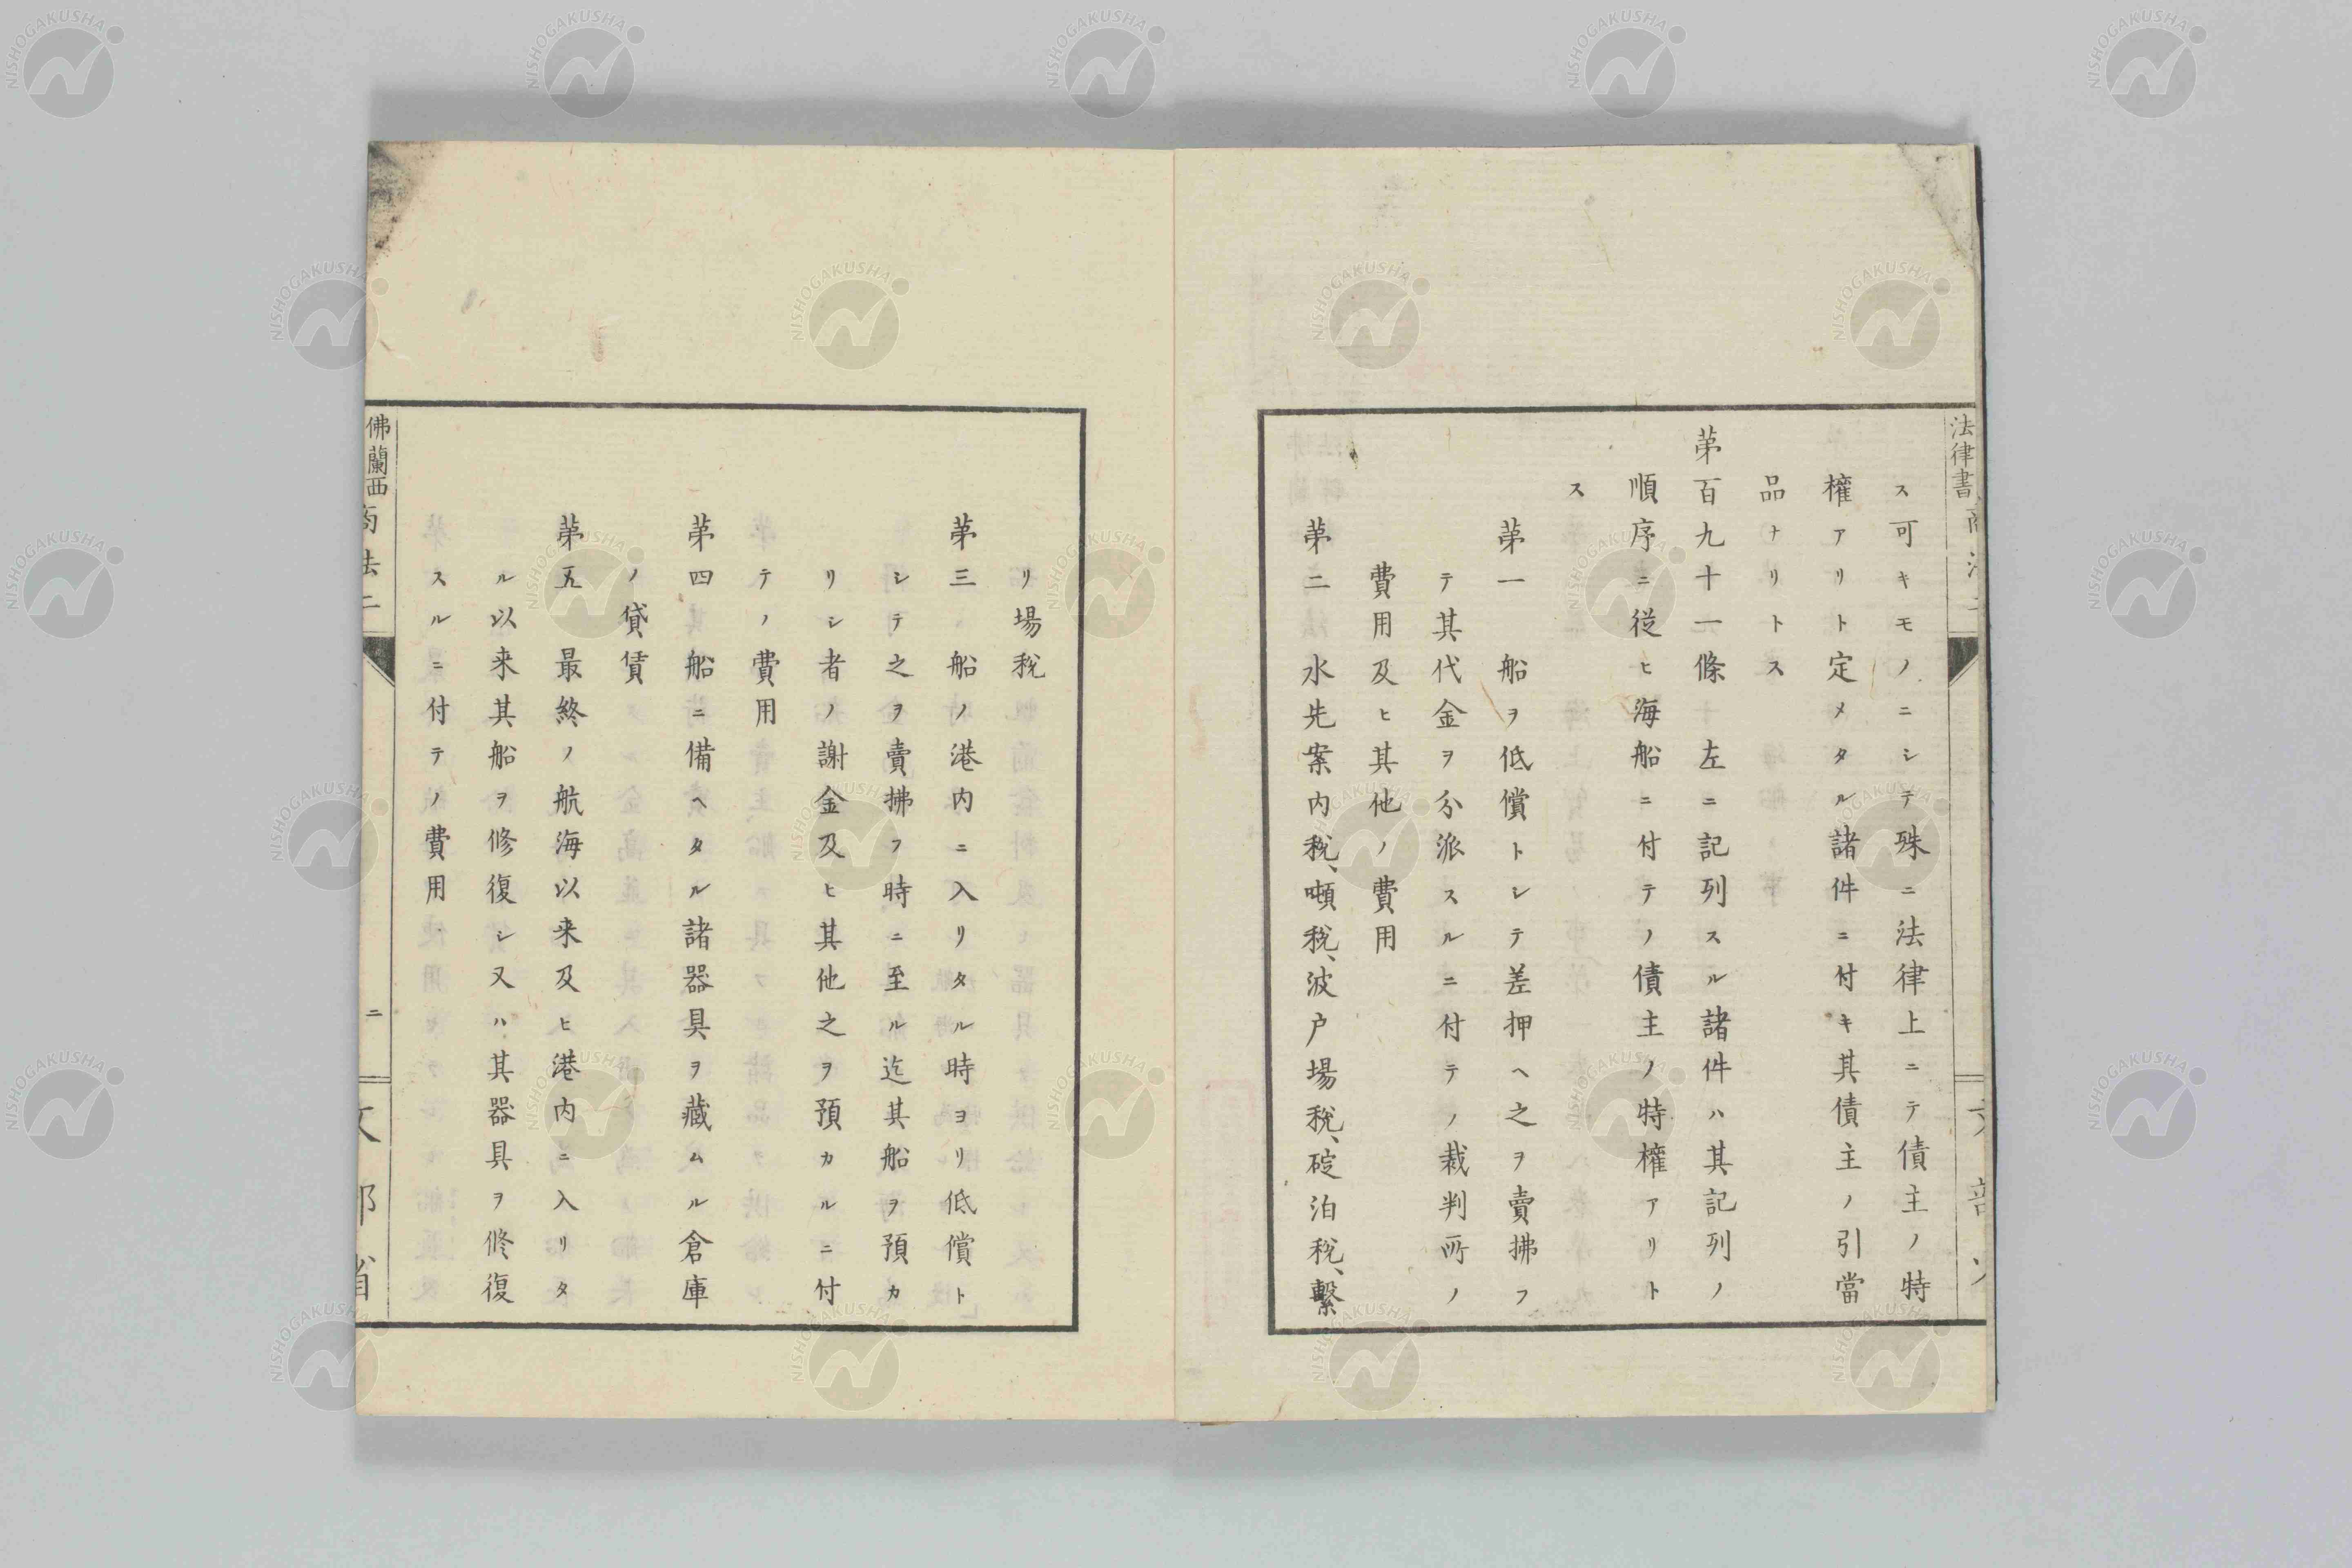 法律書
ス可キモノニシテ殊ニ法律上ニテ債主ノ特
權アリト定メタル諸件ニ付キ其債主ノ引當
品ナリトス
苐百九十一條 左ニ記列スル諸件ハ其記列ノ
順序ニ從ヒ海船ニ付テノ債主ノ特權アリト
ス
苐一 船ヲ低償トシテ差押ヘ之ヲ賣拂フ
テ其代金ヲ分派スルニ付テノ裁判所ノ
費用及ヒ其他ノ費用
苐二 水先案内税、噸税、波戸場税、碇泊税、繫
リ場税
苐三 船ノ港内ニ入リタル時ヨリ低償ト
シテ之ヲ賣拂フ時ニ至ル迄其船ヲ預カ
リシ者ノ謝金及ヒ其他之ヲ預カルニ付
テノ費用
苐四 船ニ備ヘタル諸器具ヲ藏ムル倉庫
ノ貸賃
苐五 最終ノ航海以来及ヒ港内ニ入リタ
ル以来其船ヲ修復シ又ハ其器具ヲ修復
スルニ付テノ費用
佛蘭西商法二
二
文部省
NISHOGAKUSHA